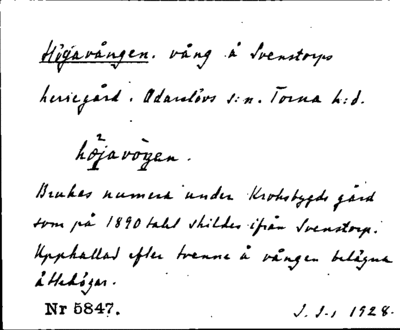 Höjavången. vång å Svenstorps
herregård. Odarslövs s:n. Torna h:d.
höjavögen.
Brukas numera under Krobsbygds gård
som på 1890 talet skildes ifrån Svenstorp.
Uppkallad efter trenne å vången belägna
åttehögar.
Nr 5847.
J. S-, 1928.